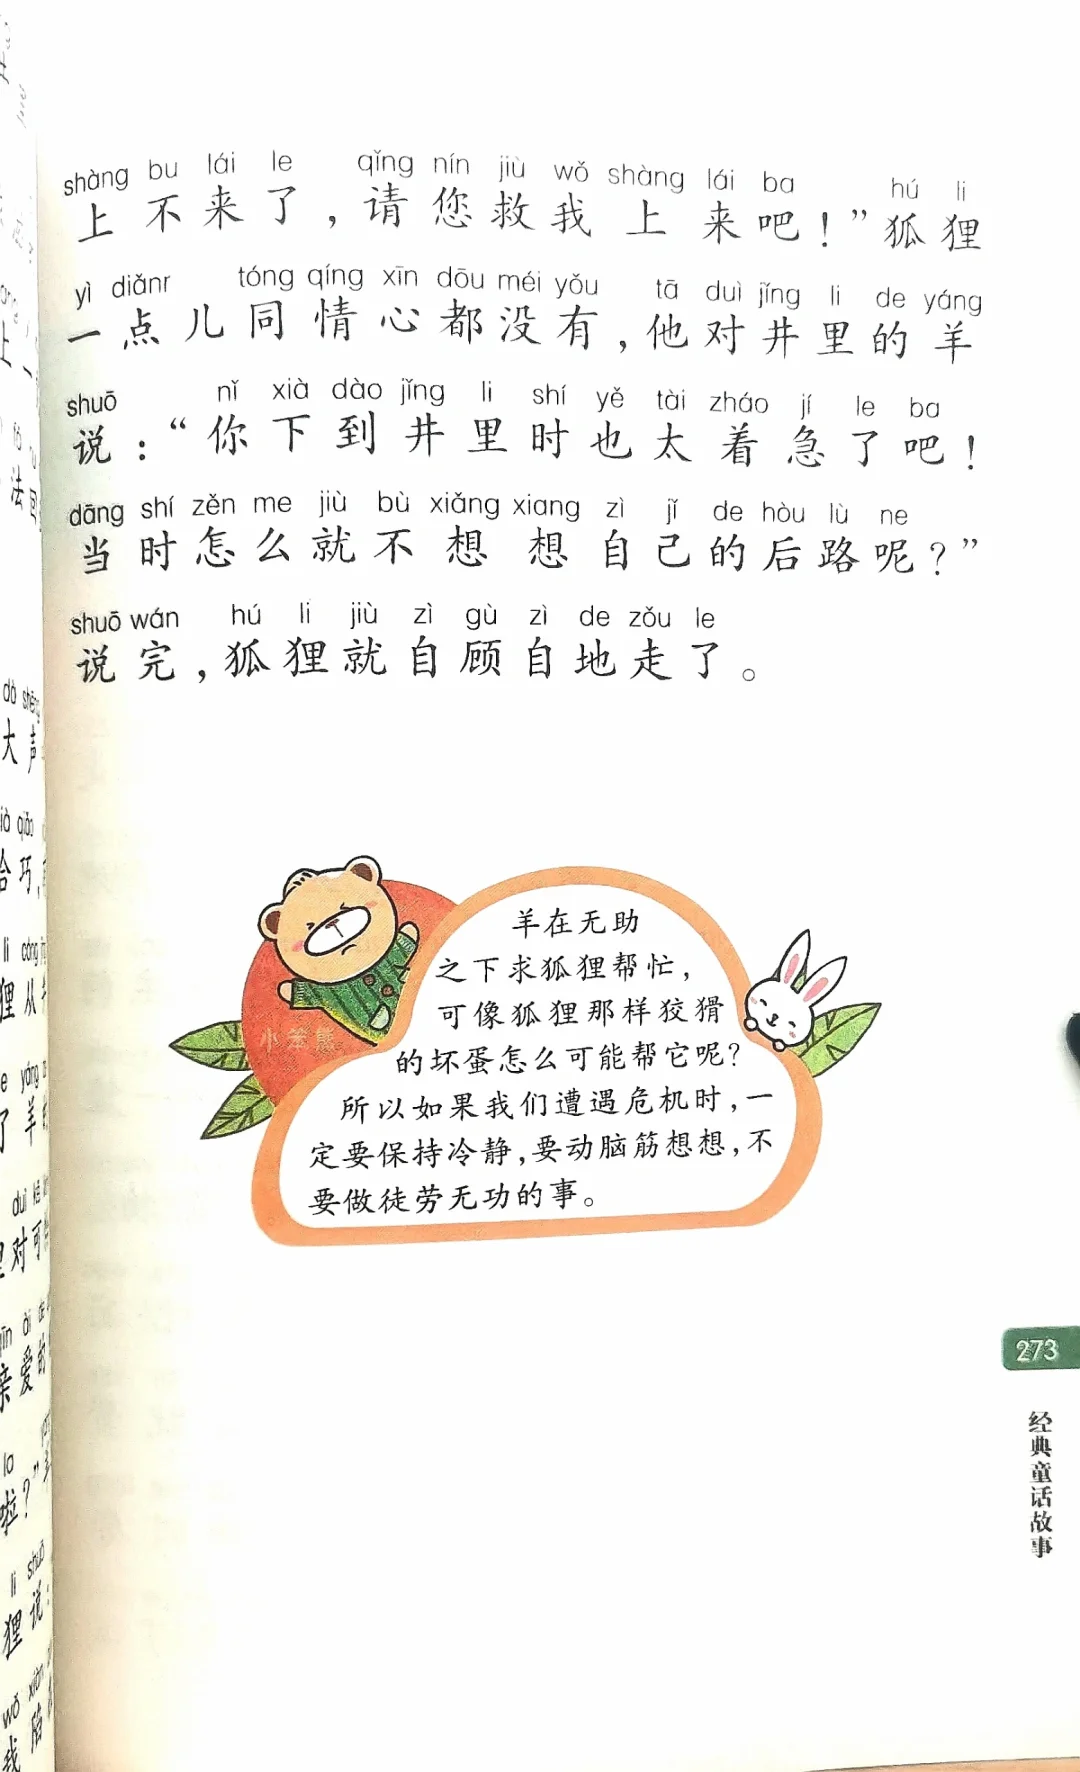 shàng bu lái le qǐng nín jiù wǒ shàng lái ba hú li
上不来了，请您救我上来吧！”狐狸
yì diǎnr tóng qíng xīn dōu méi yǒu tā duì jǐng li de yáng
一点儿同情心都没有，他对井里的羊
shuō nǐ xià dào jǐng li shí yě tài zháo jí le ba
说：“你下到井里时也太着急了吧！
dāng shí zěn me jiù bù xiǎng xiang zì jǐ de hòu lù ne
当时怎么就不想想自己的后路呢？”
shuō wán hú li jiù zì gù zì de zǒu le
说完，狐狸就自顾自地走了。
羊在无助
之下求狐狸帮忙，
可像狐狸那样狡猾
的坏蛋怎么可能帮它呢？
所以如果我们遭遇危机时，一
定要保持冷静，要动脑筋想想，不
要做徒劳无功的事。
小笨熊
273
经典童话故事
法
dà shēng
大声
qiǎo
巧，
li cóng
狸从
yáng
羊
duì
对可
qīn ài
亲爱的
la
啦？”
li shuō
狸说：
wǒ xiàn
我陷